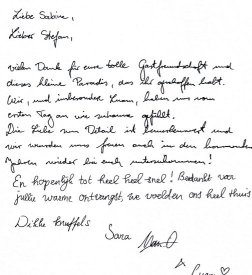 Liebe Sabine,
Lieber Stefan,
vielen Dank für eure tolle Gastfreundschaft und
dieses kleine Paradis, das ihr geschaffen habt.
Wir, und insbesondere Luan, haben uns vom
ersten Tag an wie zuhause gefühlt.
Die Liebe zum Detail ist bemerkenswert und
wir würden uns freuen auch in den kommenden
Jahren wieder bei euch unterzukommen!
En hopenlijk tot heel heel snel! Bedankt voor
jullie warme ontvangst, we voelden ons heel thuis
Dikke knuffels
Sara